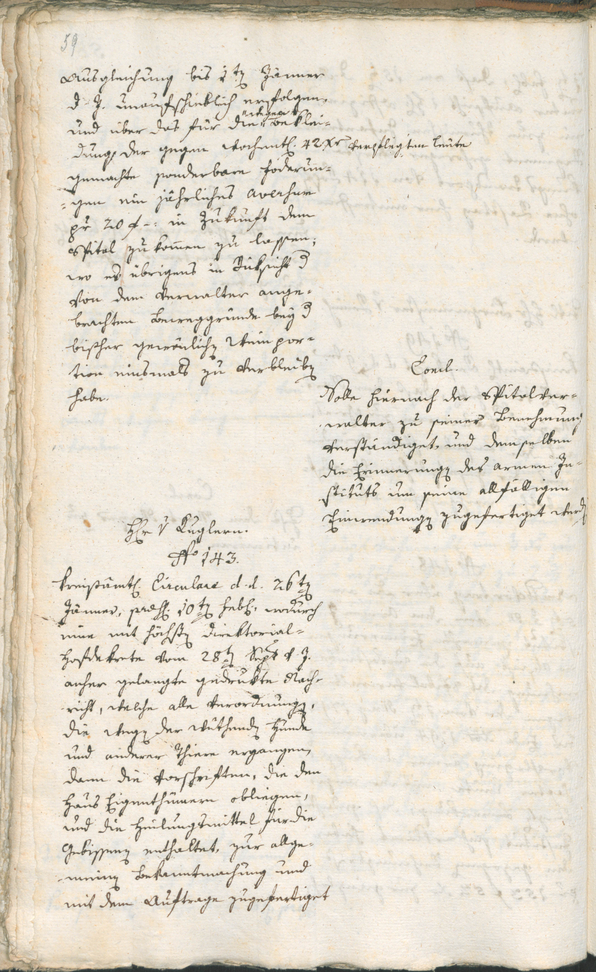 59
Ausgleichung bis 1tn Jänner
d. J. unaufschieblich erfolgen,
und über das für die Beklei-
dung der gegen wochentl. 42 Xr verpflegten Leute
gemachte sonderbare Foderun-
gen ein jährliches aversum
pr 20 f –: in Zukunft dem
Spital zukomen zu lassen;
wo es übrigens in Rüksicht d
von dem Verwalter ange-
brachten Beweggründe bey d
bisher gewönlichen Weinpor-
tion einsmals zu verbleiben
habe.
Concl.
Solle hiernach der Spitalver-
walter zu seiner Benehmung
verständiget, und demselben
die Erinnerung des armen In-
stituts um seine allfälligen
Einwendungen zugefertiget werd
Hr v Kuglern.
No 143.
Kreisämtl. Circulare d. d. 26tn
Jänner, praest. 10tn Feb., wodurch
eine mit höchsten Direktorial-
Hofdekrete vom 28tn Sept v. J.
anher gelangte gedrukte Nach-
richt, welche alle Verordnungen,
die wegen der wüthenden Hunde
und anderer Thiere ergangen,
dann die Vorschriften, die den
Haus Eigenthümern obliegen,
und die Heilungsmittel für die
Gebissenen enthaltet, zur allge-
meinen Bekanntmachung und
mit dem Auftrage zugefertiget